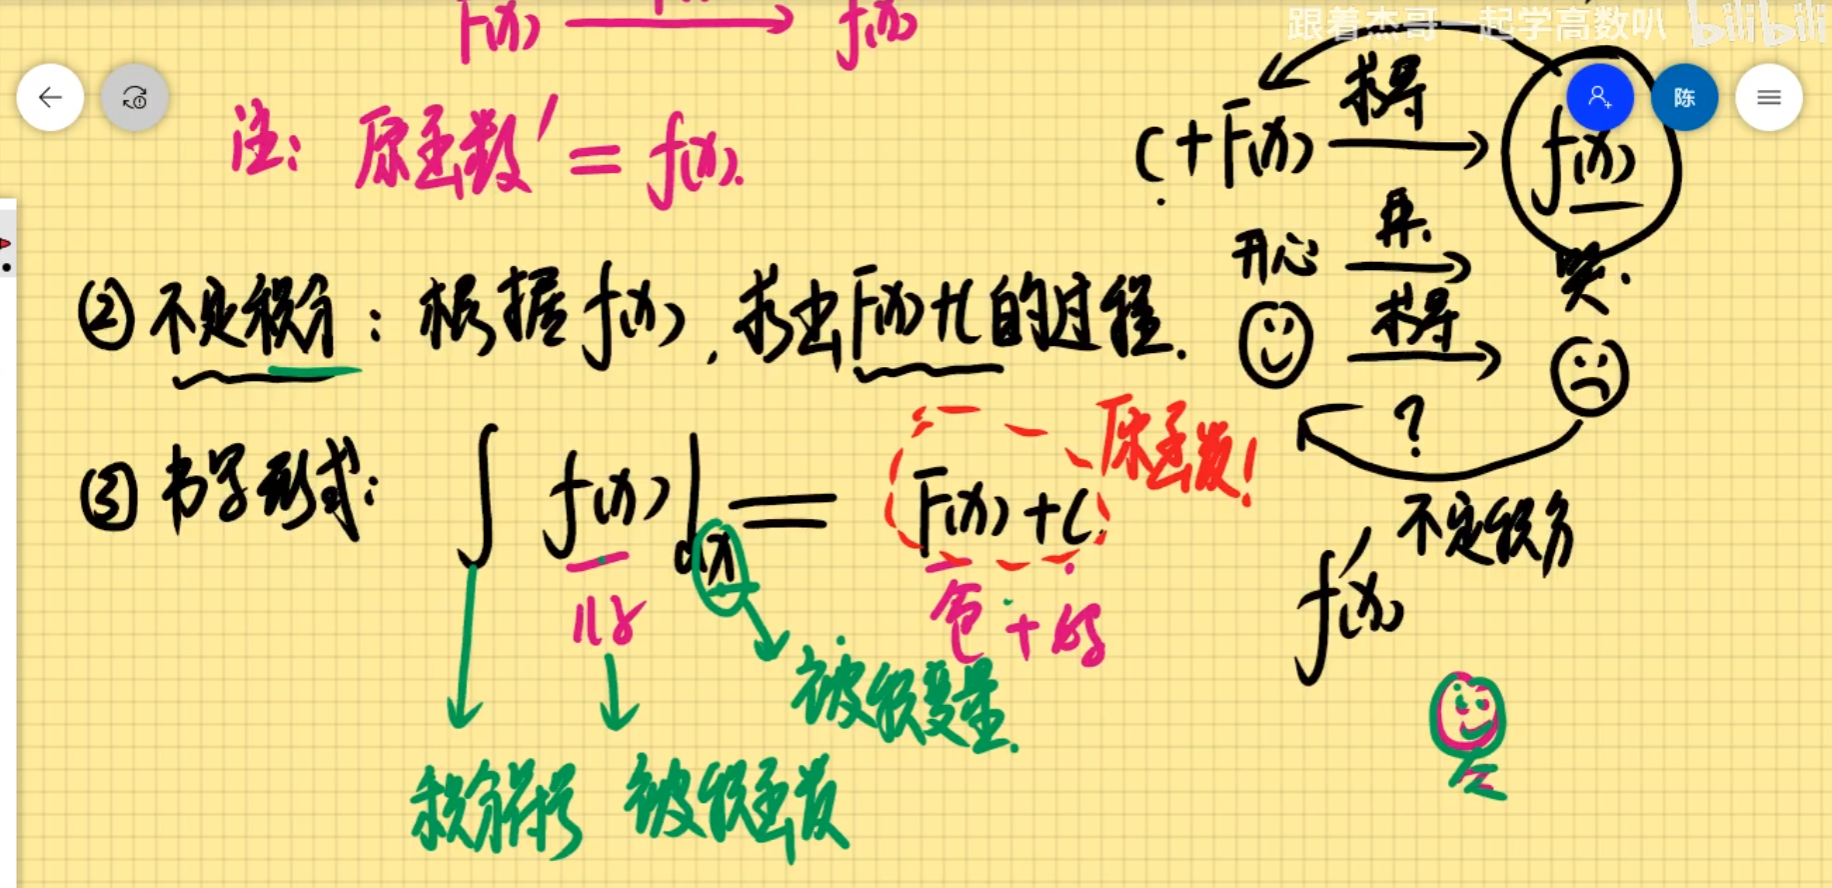 跟着杰哥一起学高数叭 bilibili
F(x) → f(x)
陈
注: 原函数′ = f(x).
C + F(x) 求导 → f(x)
开心 → 哭.
② 不定积分: 根据f(x), 求出F(x)+C的过程.
求导 →
?
③ 书写形式: ∫ f(x) dx = F(x)+C.
原函数!
不定积分
f′(x)
被积变量.
积分符号 被积函数